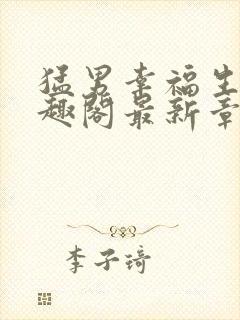 猛男幸福生
趣阁最新章
李子琦